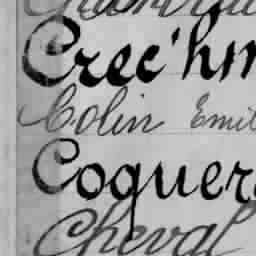 Crec'hm
Colin Emil
Coquer
Cheval